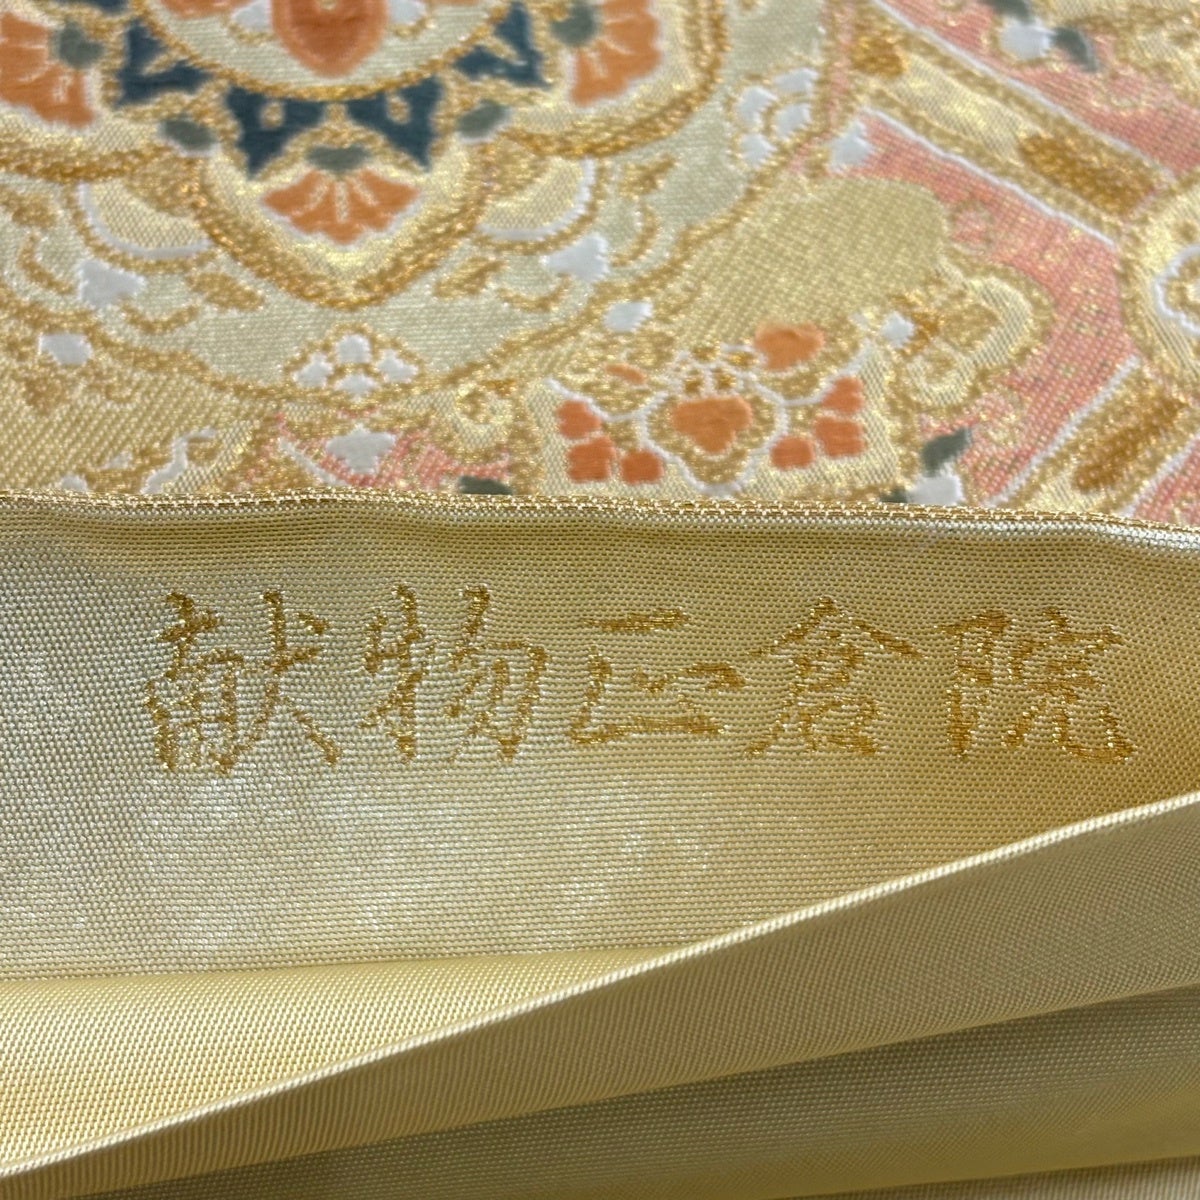 献物正倉院